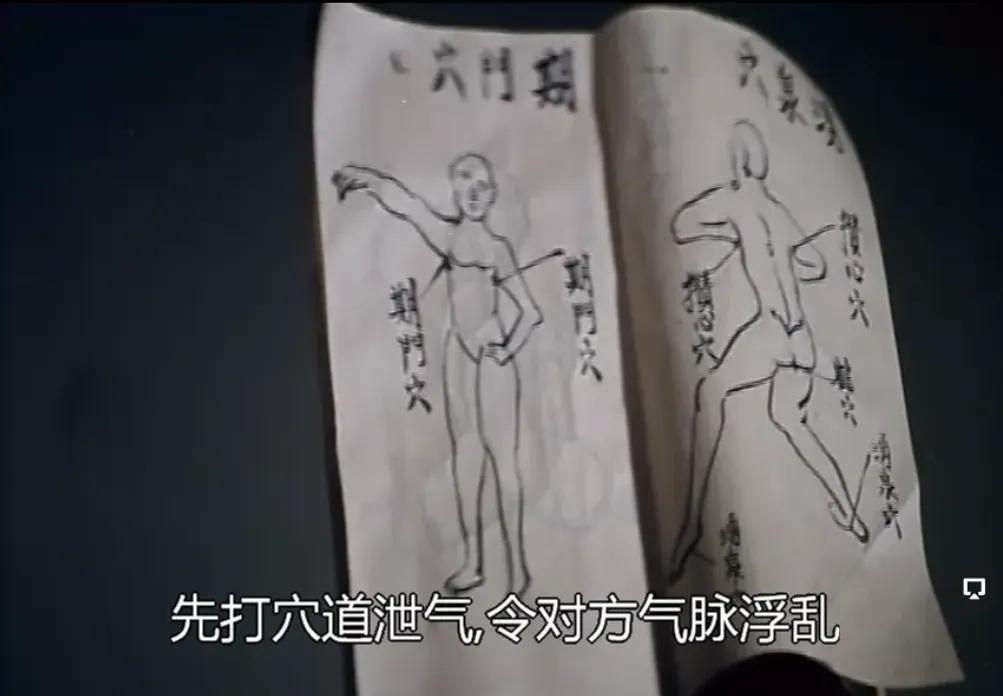 期門穴
期門穴
期門穴
湧泉穴
攢心穴
攢心穴
湧泉穴
湧泉
先打穴道泄气,令对方气脉浮乱